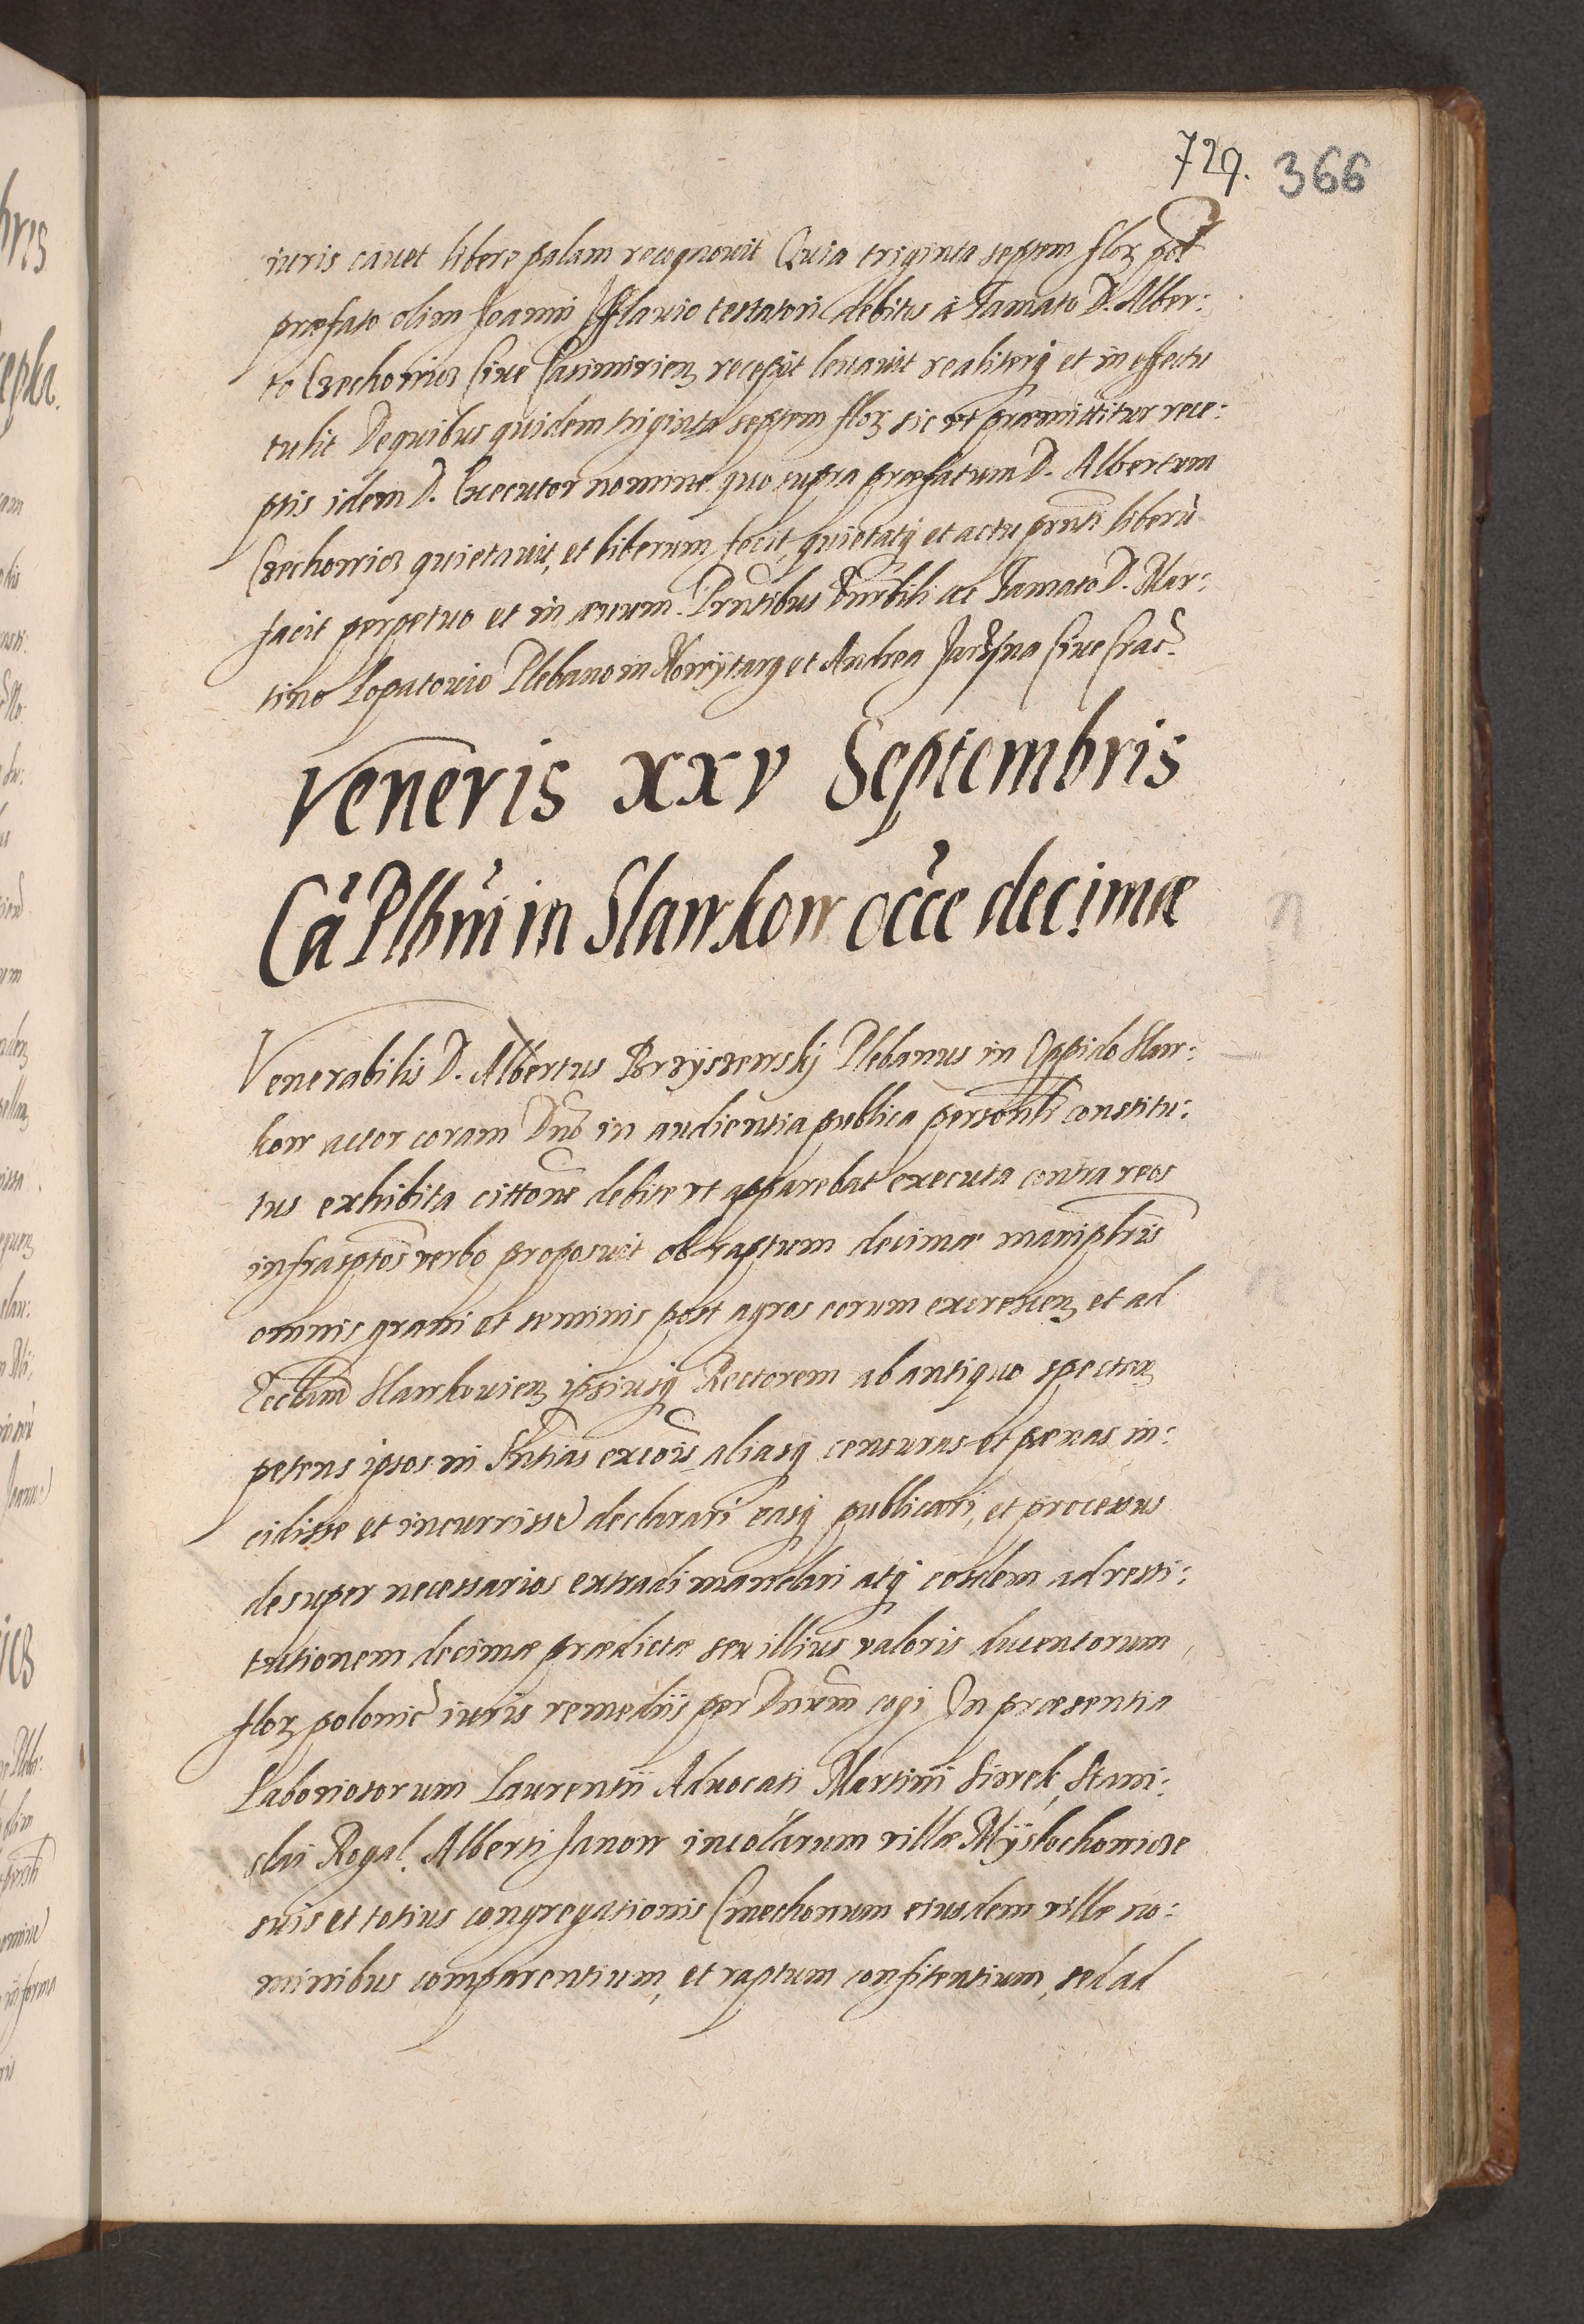 729. 366
iuris cauet libere palam recognouit Quia triginta septem florʒ pol
præfato olim Joanni Flauio testatori debitos à Famato D. Alber:
to Czechowicz Ciue Casimirienʒ recepit leuauit realiterqʒ et in effectu
tulit De quibus quidem triginta septem florʒ sic ut præmittitur rece:
ptis idem D. Executor nomine quo supra præfatum D. Albertum
Czechowicz quietauit, et liberum fecit, quietatqʒ et actu pnti liberũ
facit perpetuo et in æuum. Pntibus Vnrbili ac Famato D. Mar:
tino Lopatouio Plebano in Nowytarg et Andrea Jarzyna Ciue Crac.
Veneris xxv Septembris
Cã Plbni in Slawkow occe decimæ
Venerabilis D. Albertus Brzyszewskj Plebanus in Oppido Slaw:
kow actor coram Dno in audientia publica personlr constitu:
tus exhibita cittone debite vt apparebat executa contra reos
infrasptos verbo proposuit ob raptum decimæ manipłris
omnis grani et seminis post agros eorum excrescenʒ et ad
Ecclam Slawkouienʒ ipsiusqʒ Rectorem ab antiquo spectanʒ
petens ipsos in Sntias excois aliasqʒ censuras et pœnas in:
cidisse et incurrisse declarari easqʒ publicari, et processus
desuper necessarios extradi mandari atqʒ eosdem ad resti:
tutionem decimæ prædictæ seu illius valoris ducentorum
florʒ polonic iuris remediis per Dnum cogi In præsentia
Laboriosorum Laurentii Aduocati Martini Siwek, Stani:
slai Rogal. Alberti Janow incolarum villæ Myslochowicze
suis et totius congregationis Cmethonum eiusdem villæ no:
minibus comparentium, et raptum confitentium, sed ad